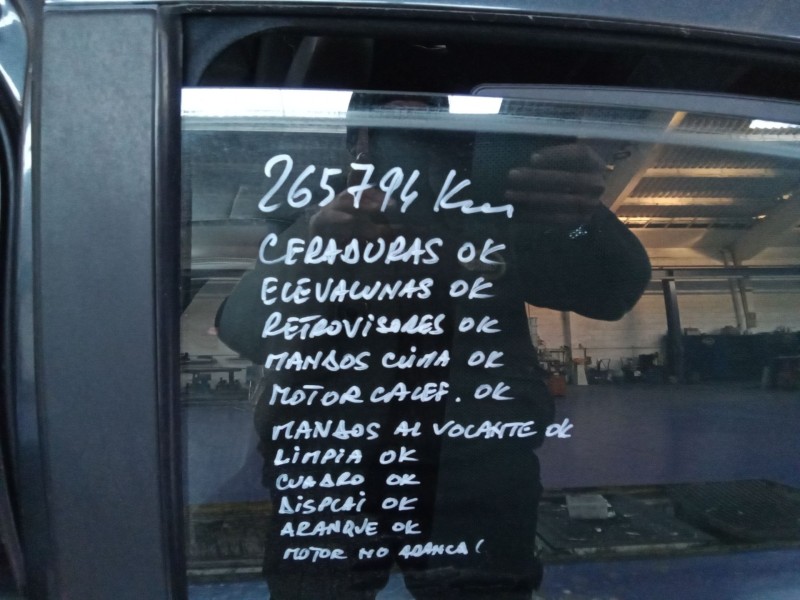 265794 Km
CERADURAS OK
ELEVALUNAS OK
RETROVISORES OK
MANDOS CLIMA OK
MOTOR CALEF. OK
MANDOS AL VOLANTE OK
LIMPIA OK
CUADRO OK
DISPLAI OK
ARANQUE OK
MOTOR NO ARANCA!